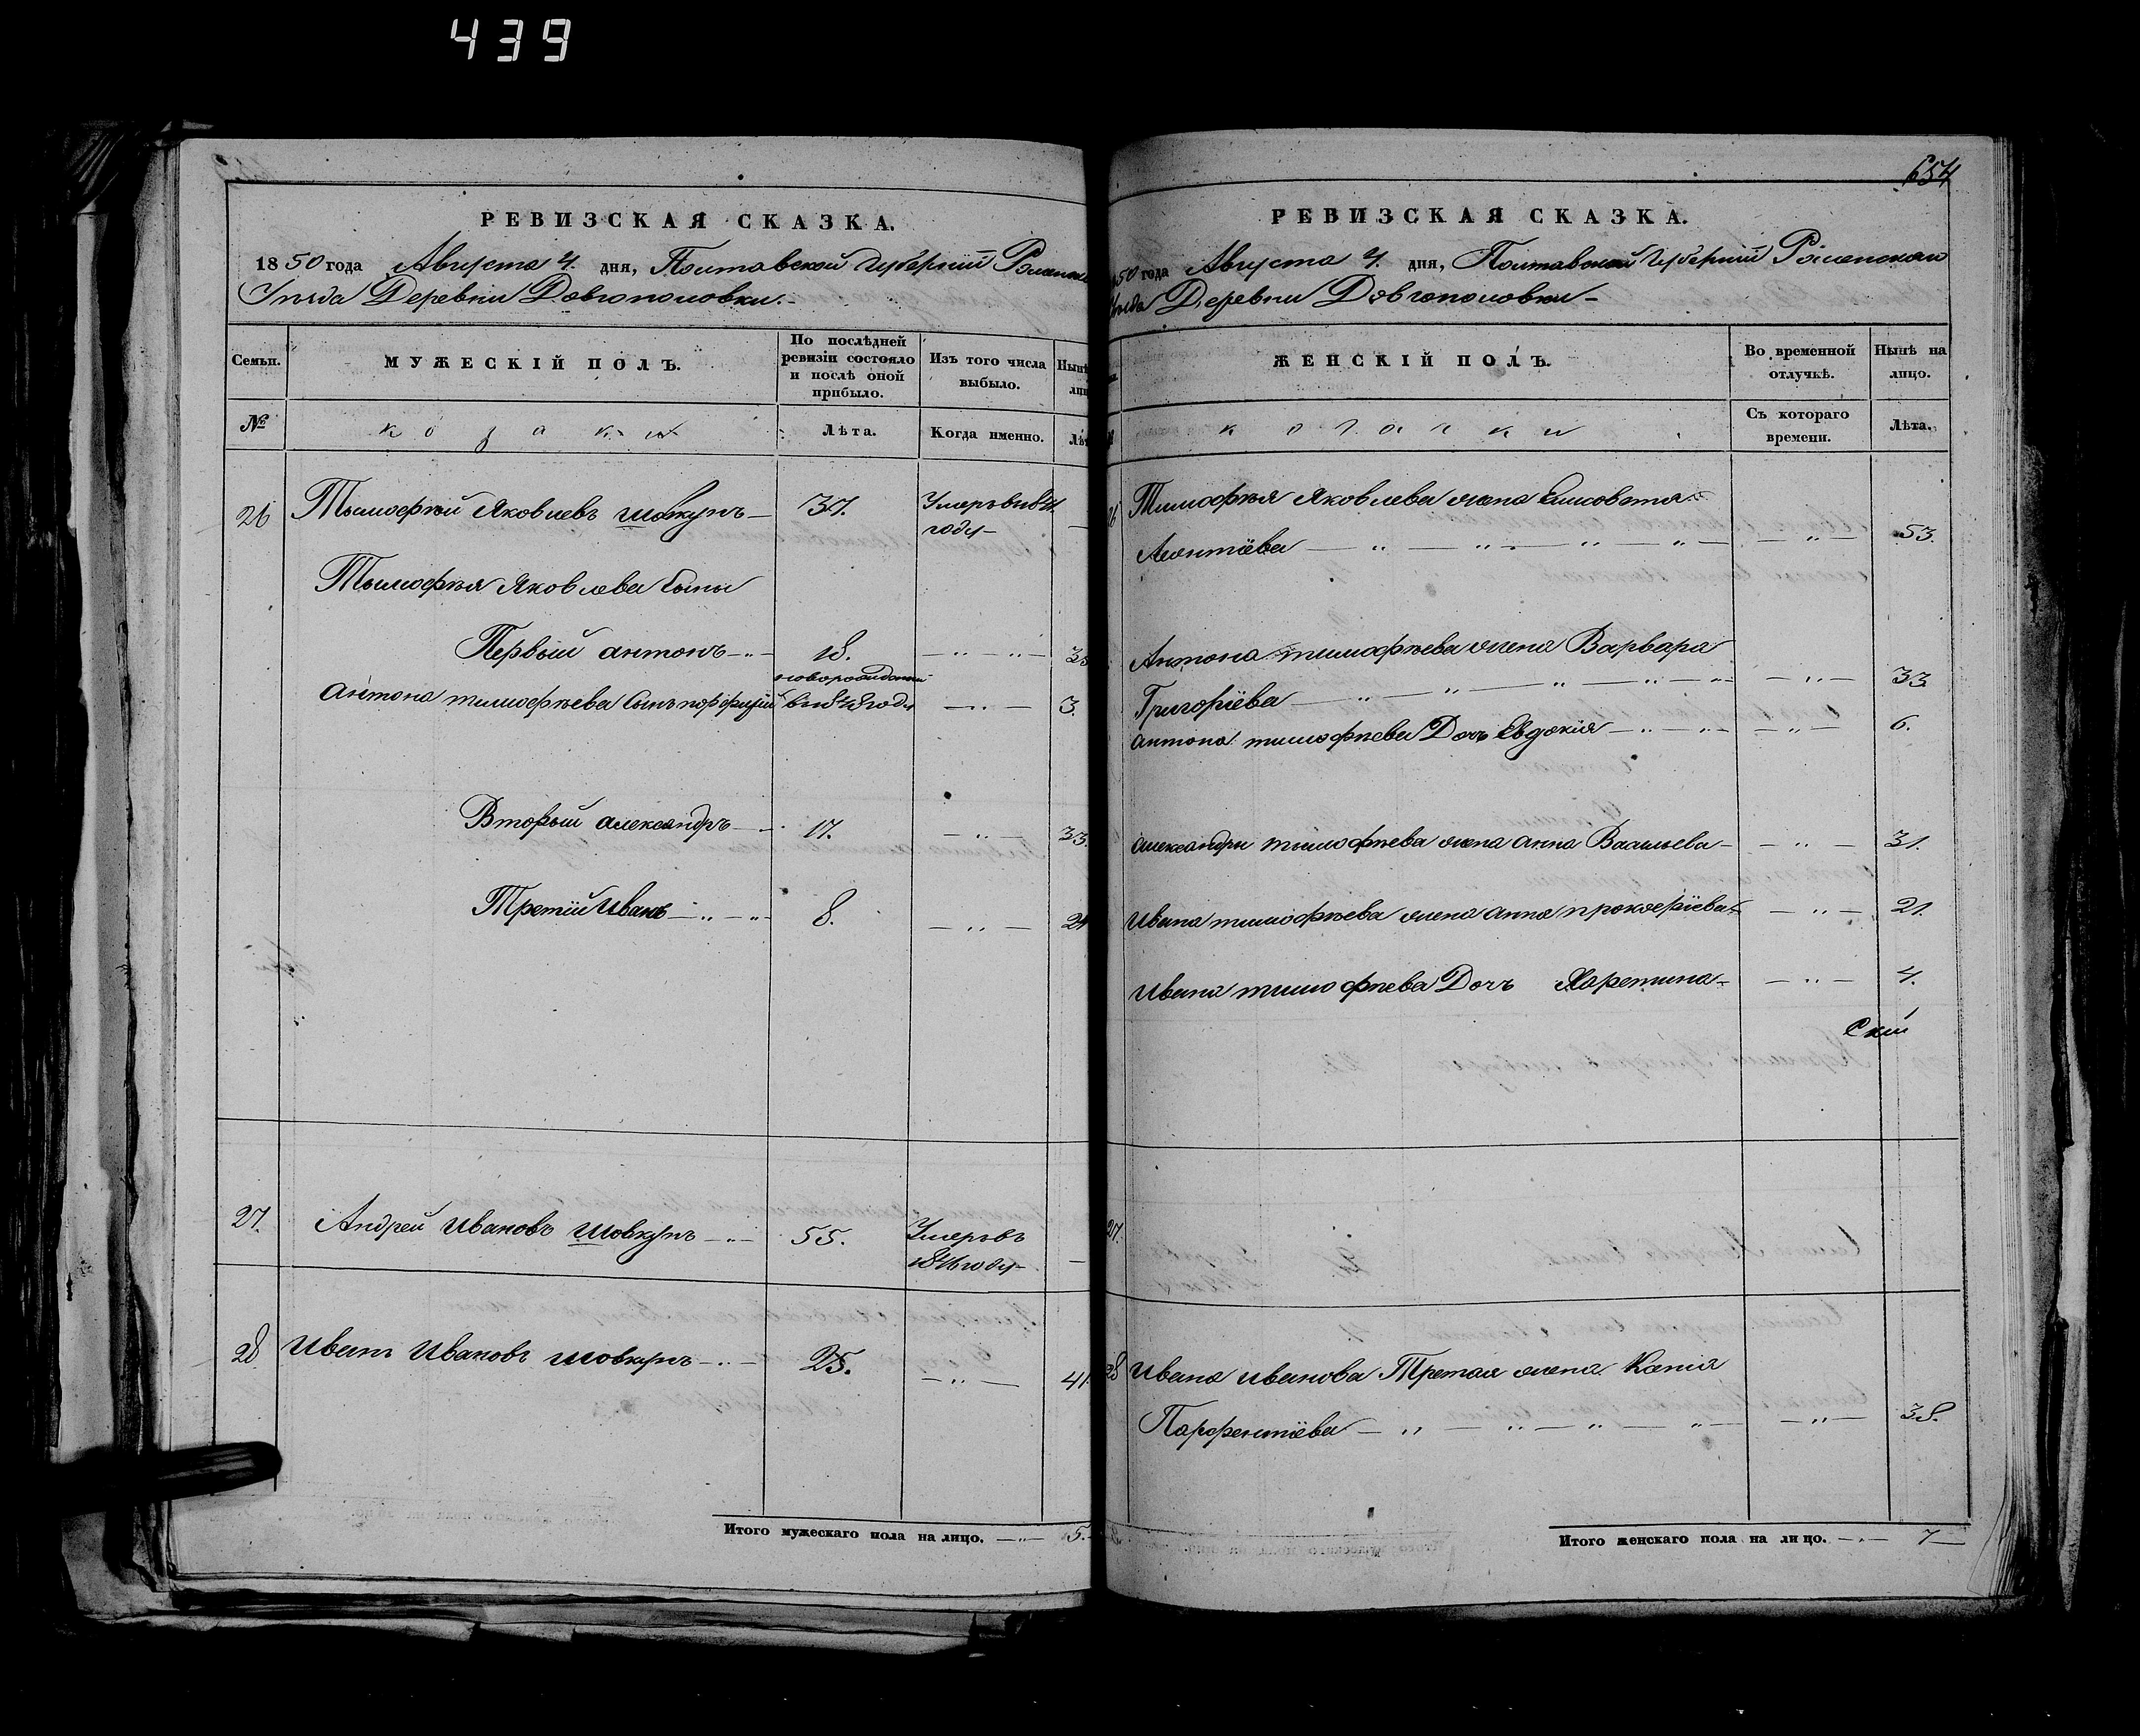 439
РЕВИЗСКАЯ СКАЗКА.
1850 года Августа 4. дня, Полтавской Губернїи Роменска
Уѣзда Деревни Довгополовки.-
Семьи.
МУЖЕСКІЙ ПОЛЪ.
По послѣдней ревизіи состояло и послѣ оной прибыло.
Изъ того числа выбыло.
Нынѣ
№
козаки
Лѣта.
Когда именно.
26 Тымофѣй Яковлевъ Шовкунъ — 37. Умеръ в
году —
Тымофѣя Яковлева Сыны
Первый антонъ 18.
новорожденный
Антона тимофѣева Сынъ порфирїй в 1848 году 3.
Вторый александръ 17. 33.
Третїй Иванъ 8. 24
27. Андрей Ивановъ Шовкунъ 55. Умеръ въ
1846 году
28 Иванъ Ивановъ Шовкунъ 25. 41.
Итого мужескаго пола на лицо. 5.
654
РЕВИЗСКАЯ СКАЗКА.
50 года Августа 4. дня, Полтавской Губернїи Роменскаго
Уѣзда Деревни Довгополовки —
ЖЕНСКІЙ ПОЛЪ.
Во временной отлучкѣ.
Нынѣ на лицо.
козачки
Съ котораго времени.
Лѣта.
26 Тимофѣя Яковлева жена Елисовета
Леонтїева 53.
Антона тимофѣева жена Варвара
Григорїева 33
антона тимофѣева Дочь Евдокїя 6.
александры тымофѣева жена анна Васильева 31.
Ивана тимофѣева жена анна прокофїева 21.
Ивана тимофѣева Дочь Харетина 4.
27.
28 Ивана Иванова Третая жена Ксенїя
Парфентїева 38.
Итого женскаго пола на лицо. 7